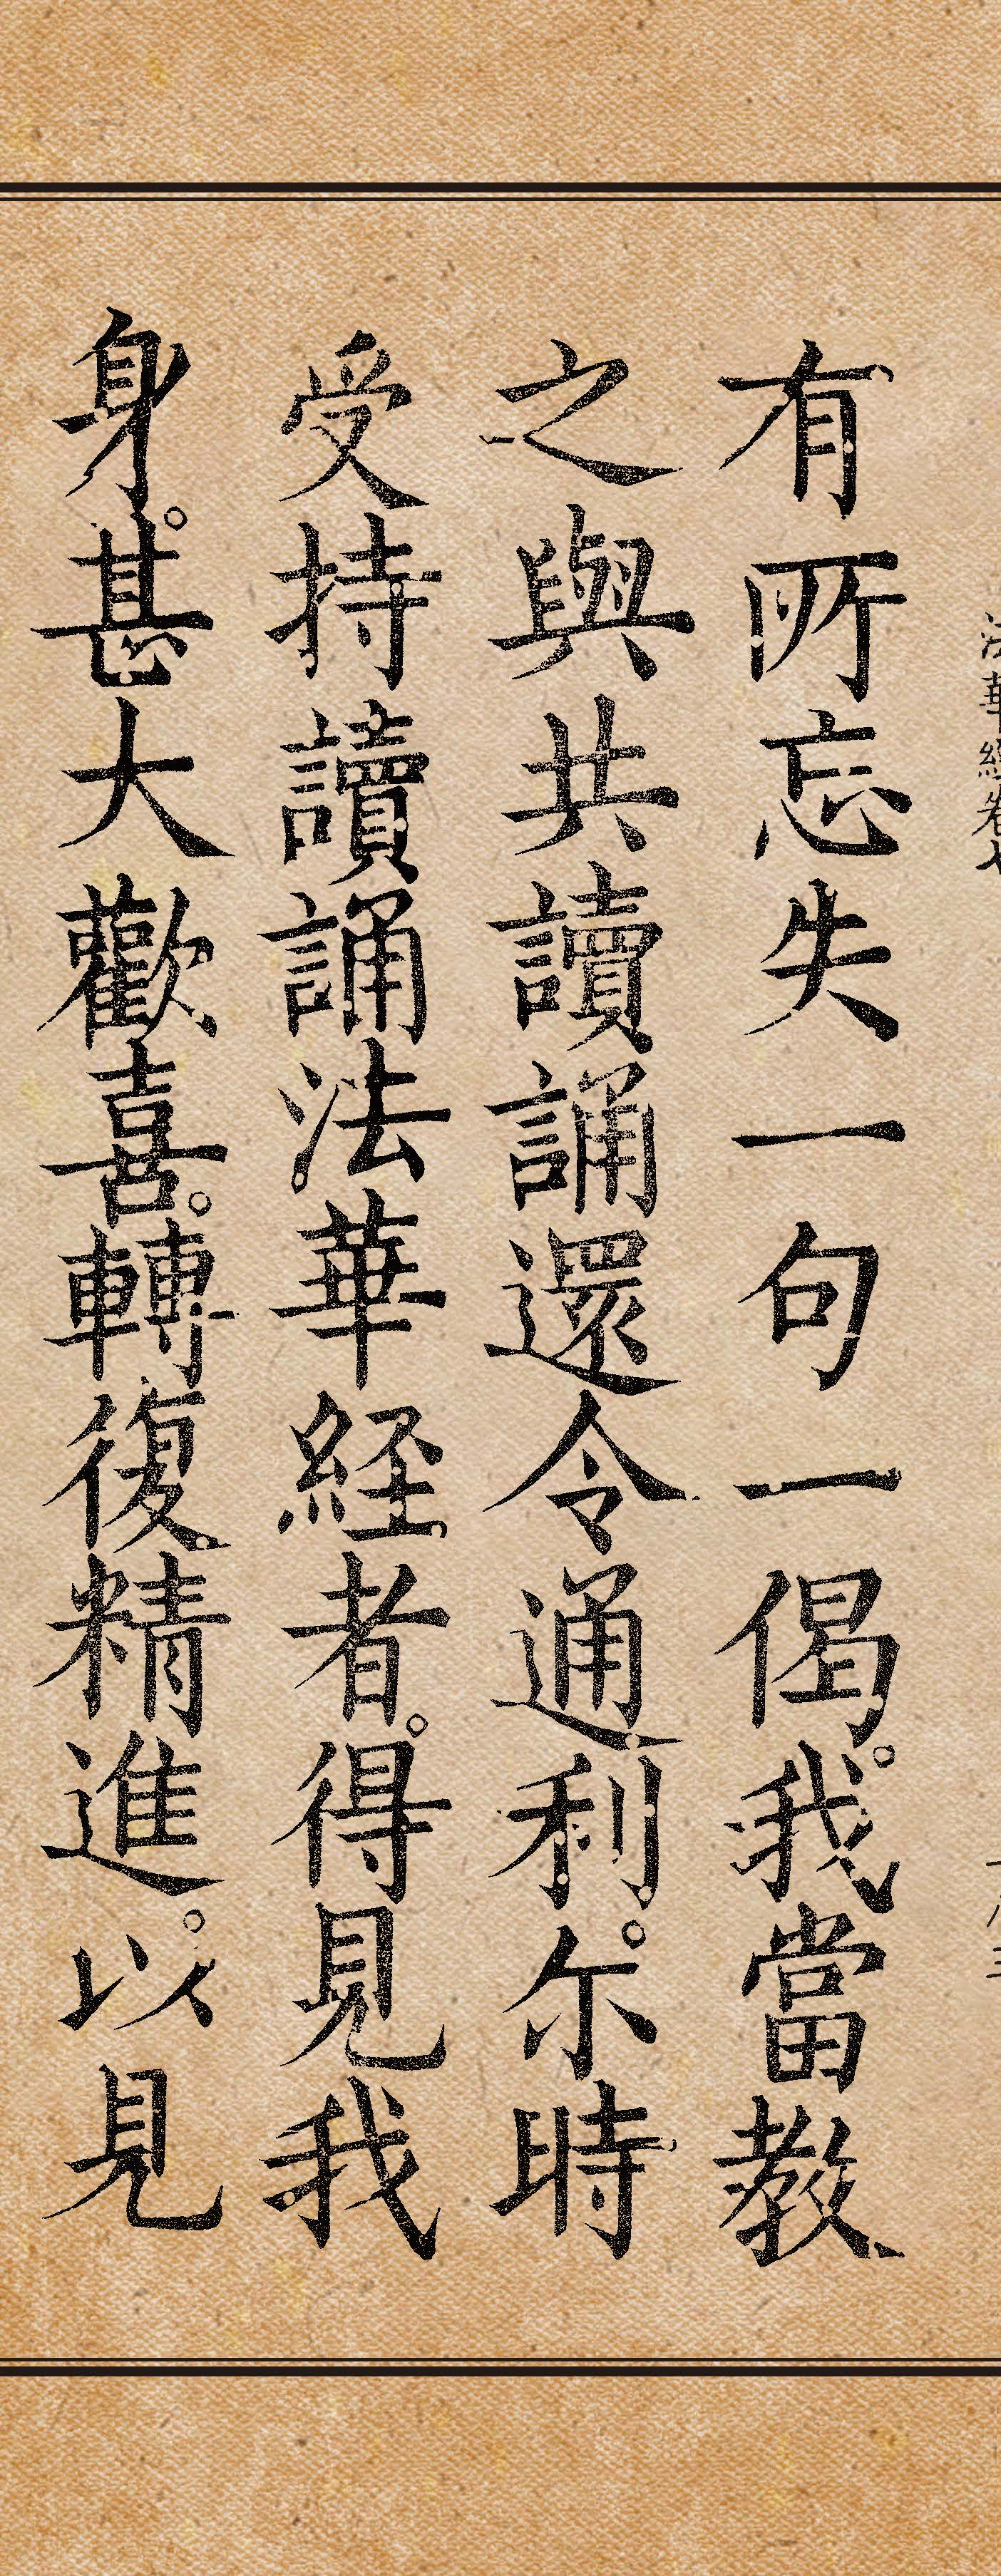 法華經卷七
有所忘失一句一偈。我當教
之與共讀誦還令通利。尒時
受持讀誦法華経者。得見我
身。甚大歡喜。轉復精進。以見